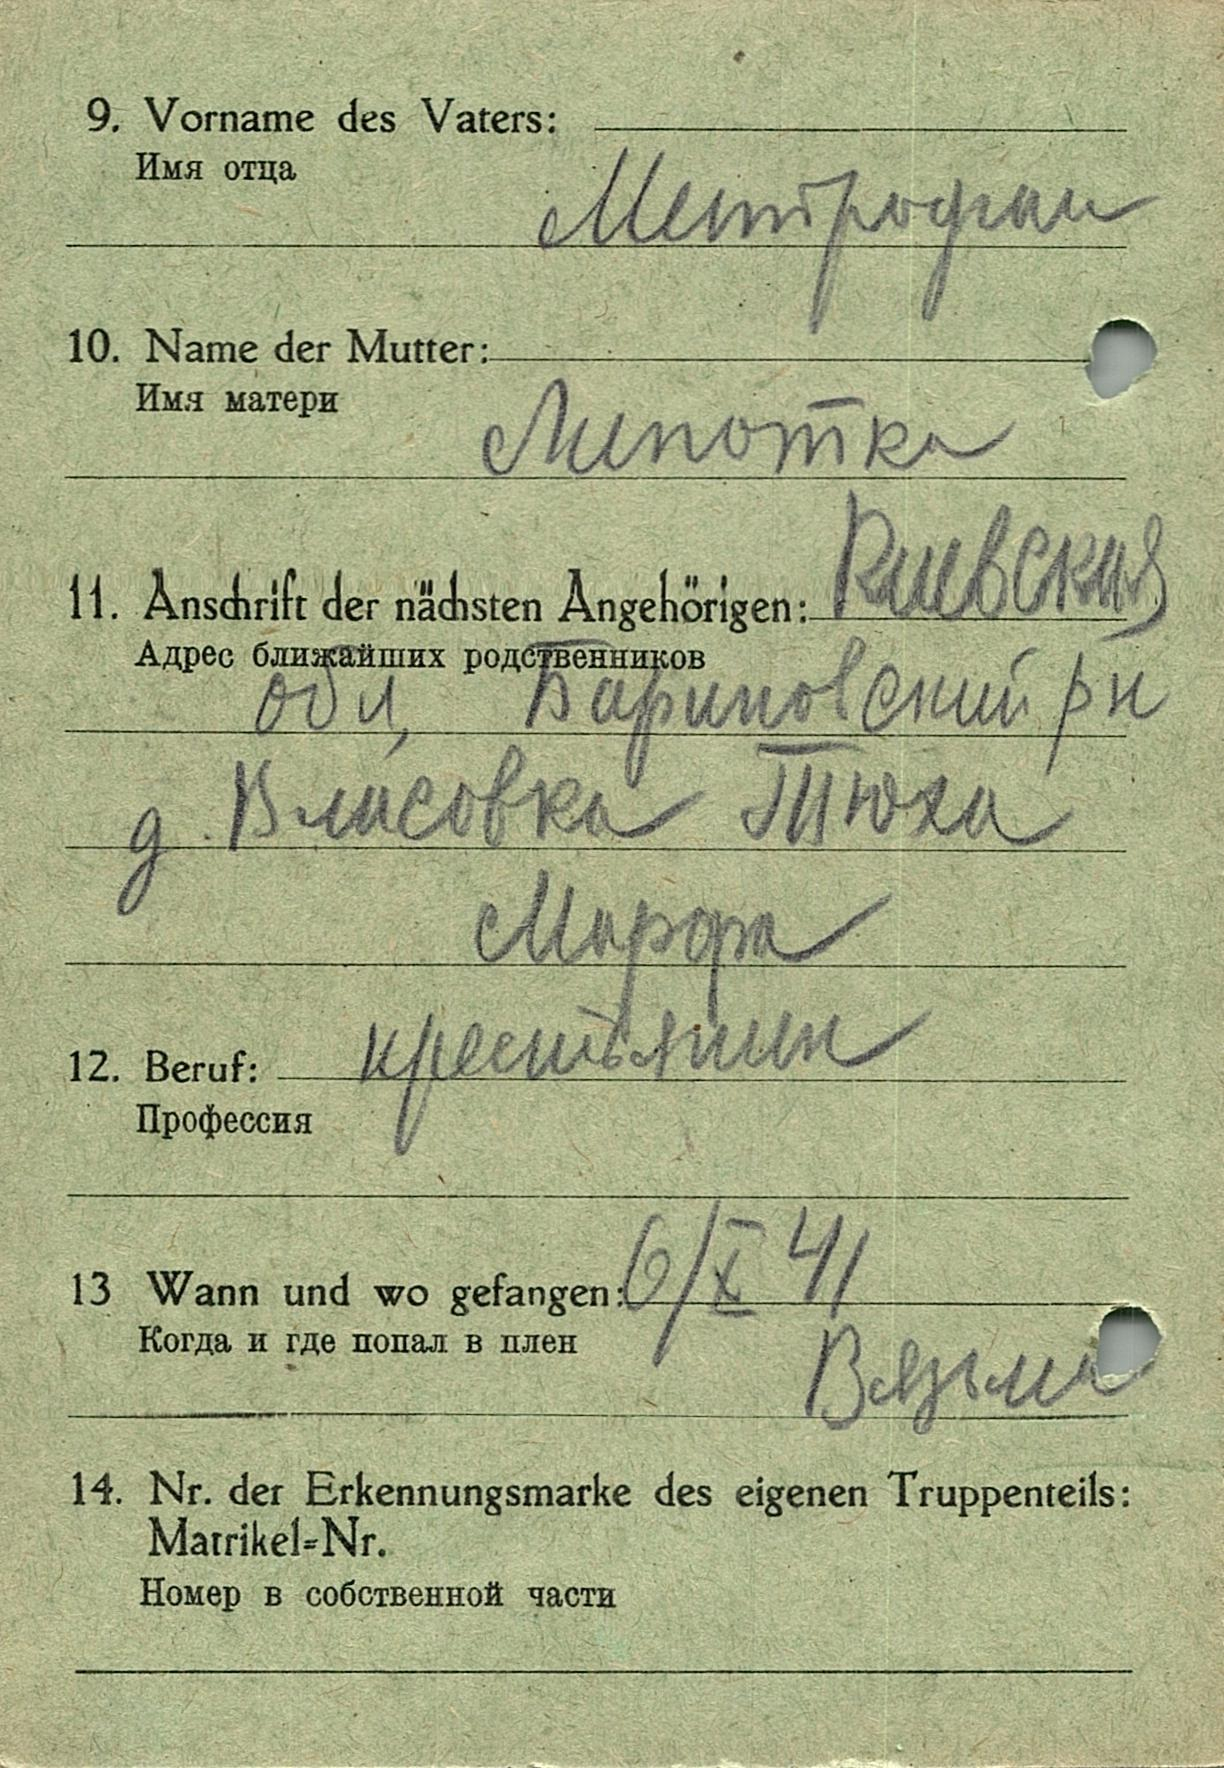 9. Vorname des Vaters:
Имя отца
Метрофан
10. Name der Mutter:
Имя матери
Липотка
Киевская
11. Anschrift der nächsten Angehörigen:
Адрес ближайших родственников
обл, Бариповский рн
д. Власовка Тюха
Марфа
12. Beruf: крестьянин
Профессия
13 Wann und wo gefangen: 6/X 41
Когда и где попал в плен
Вязьма
14. Nr. der Erkennungsmarke des eigenen Truppenteils:
Matrikel=Nr.
Номер в собственной части